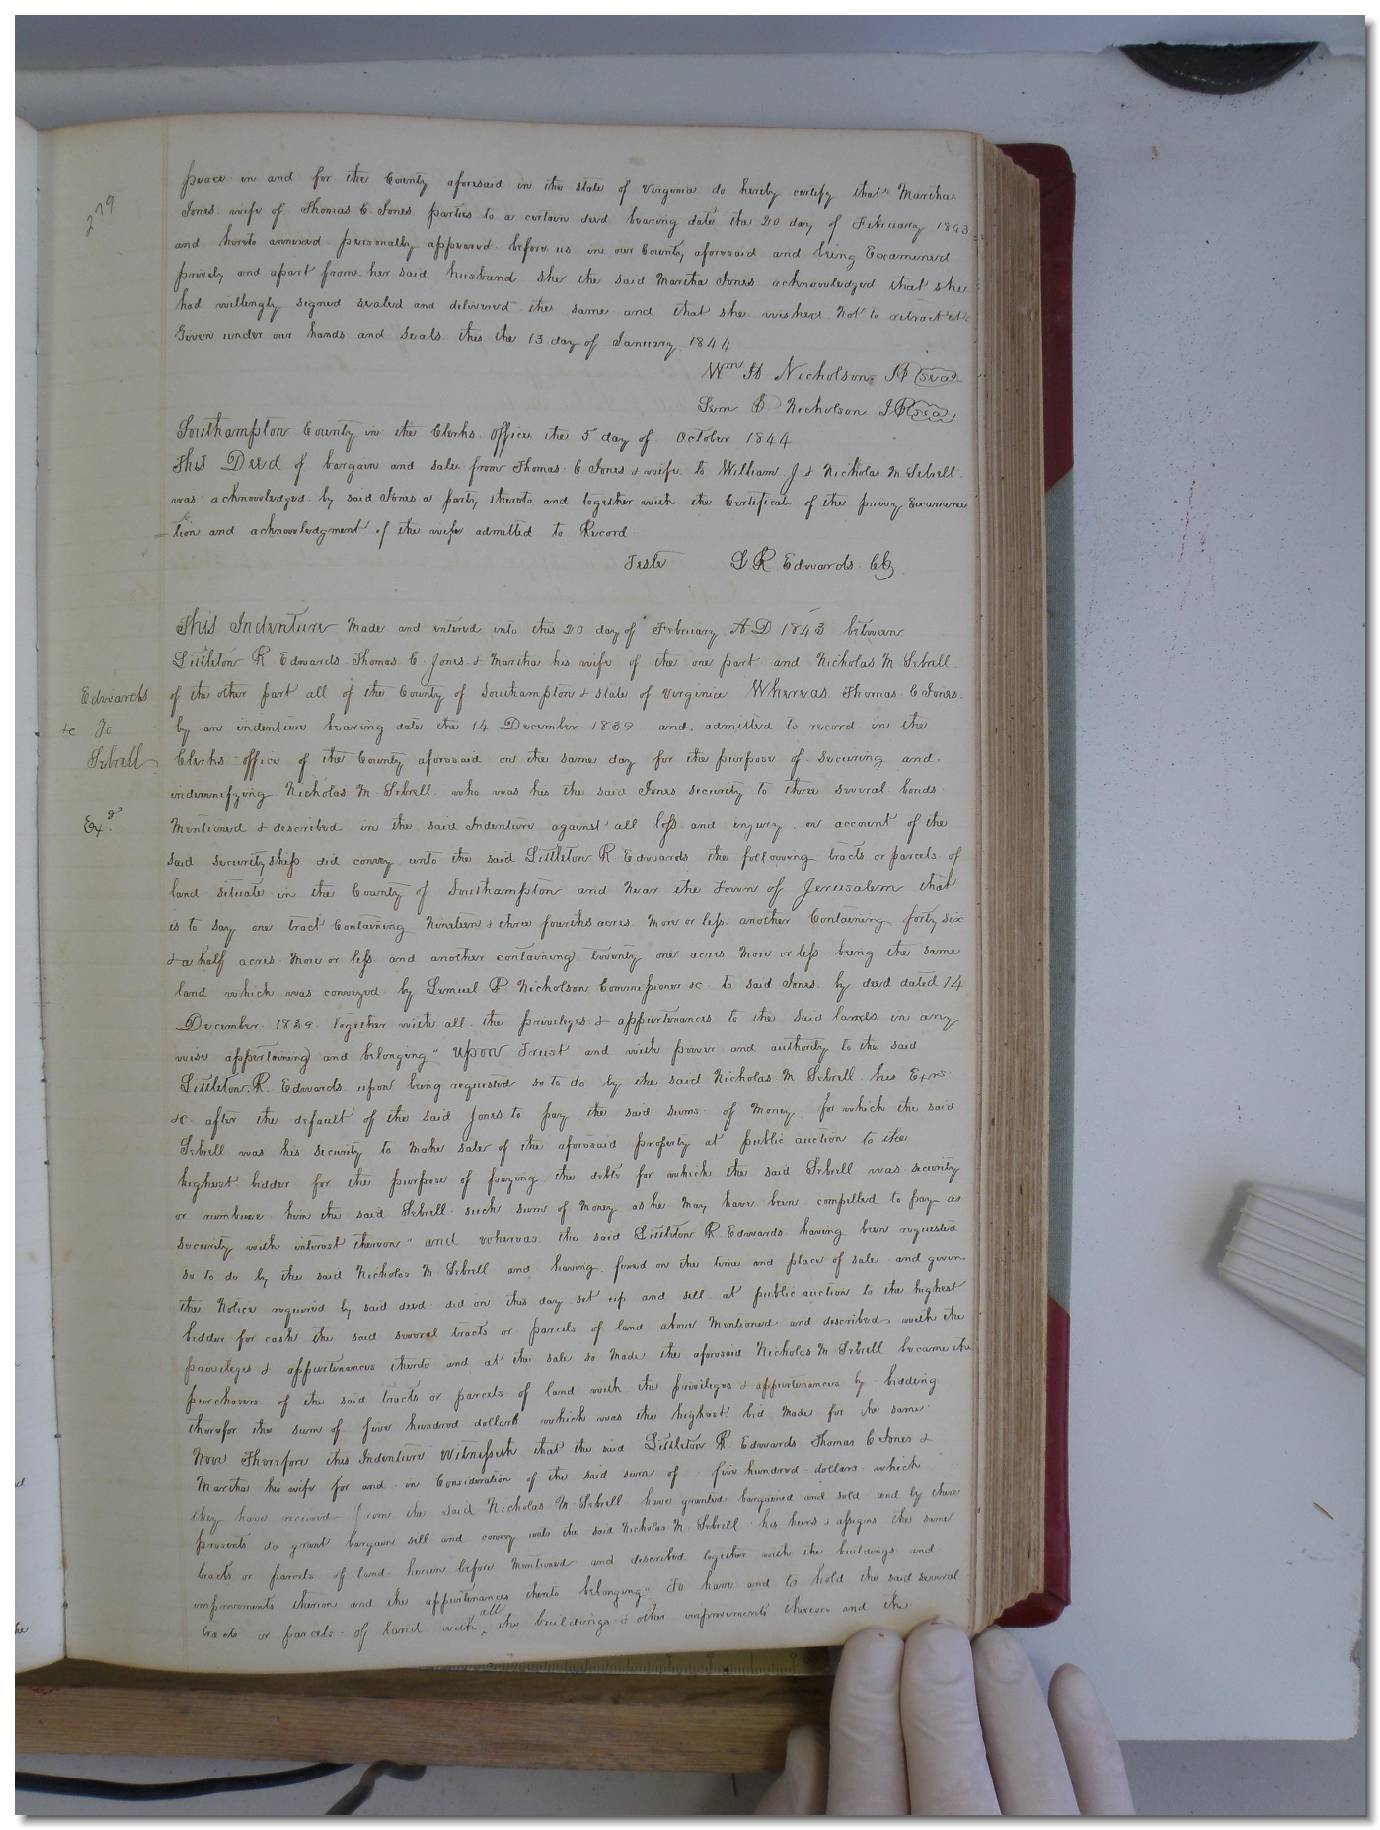 279
peace in and for the County aforesaid in the state of Virginia do hereby certify that Martha
Jones wife of Thomas C Jones parties to a certain deed bearing date the 20 day of February 1843
and hereto annexed personally appeared before us in our County aforesaid and being Examined
privily and apart from her said husband she the said Martha Jones acknowledged that she
had willingly signed sealed and delivered the same and that she wished Not to retract it
Given under our hands and Seals this the 13 day of January 1844
Wm H Nicholson JP seal
Lem P Nicholson JP seal
Southampton County in the Clerks Office the 5 day of October 1844
This Deed of bargain and sale from Thomas C Jones & wife to William J & Nicholas M Sebrell
was acknowledged by said Jones a party thereto and together with the Certificate of the privy Examina
=tion and acknowledgment of the wife admitted to Record
Teste L R Edwards CC
This Indenture Made and entered into this 20 day of February AD 1843 between
Littleton R Edwards Thomas C Jones & Martha his wife of the one part and Nicholas M Sebrell
Edwards
&c To
Sebrell
Exd.
of the other part all of the County of Southampton & state of Virginia Whereas Thomas C Jones
by an indenture bearing date the 14 December 1839 and admitted to record in the
Clerks office of the County aforesaid on the same day for the purpose of securing and
indemnifying Nicholas M Sebrell who was his the said Jones security to three several bonds
Mentioned & described in the said Indenture against all loss and injury on account of the
said securityship did convey unto the said Littleton R Edwards the following tracts or parcels of
land situate in the County of Southampton and Near the Town of Jerusalem that
is to say one tract Containing Nineteen & three fourths acres More or less another Containing forty six
& a half acres More or less and another containing twenty one acres More or less being the same
land which was conveyed by Lemuel P Nicholson Commissioner &c to said Jones by deed dated 14
December 1839 together with all the privileges & appurtenances to the said lands in any
wise appertaining and belonging" upon Trust and with power and authority to the said
Littleton R. Edwards upon being requested so to do by the said Nicholas M Sebrell his Exrs
&c after the default of the said Jones to pay the said sums of Money for which the said
Sebrell was his security to Make sale of the aforesaid property at public auction to the
highest bidder for the purpose of paying the debts for which the said Sebrell was security
or reimburse him the said Sebrell such sum of Money as he May have been compelled to pay as
security with interest thereon" and whereas the said Littleton R Edwards having been requested
so to do by the said Nicholas M Sebrell and having fixed on the time and place of sale and given
the Notice required by said deed did on this day set up and sell at public auction to the highest
bidder for cash the said several tracts or parcels of land above Mentioned and described with the
privileges & appurtenances thereto and at the sale so Made the aforesaid Nicholas M Sebrell became the
purchaser of the said tracts or parcels of land with the privileges & appurtenances by bidding
therefor the sum of five hundred dollars which was the highest bid Made for the same
Now Therefore this Indenture Witnesseth that the said Littleton R Edwards Thomas C Jones &
Martha his wife for and in Consideration of the said sum of five hundred dollars which
they have received from the said Nicholas M Sebrell have granted bargained and sold and by these
presents do grant bargain sell and convey unto the said Nicholas M. Sebrell his heirs & assigns the same
tracts or parcels of land herein before Mentioned and described together with the buildings and
improvements thereon and the appurtenances thereto belonging" To have and to hold the said several
tracts or parcels of land with all the buildings & other improvements thereon and the